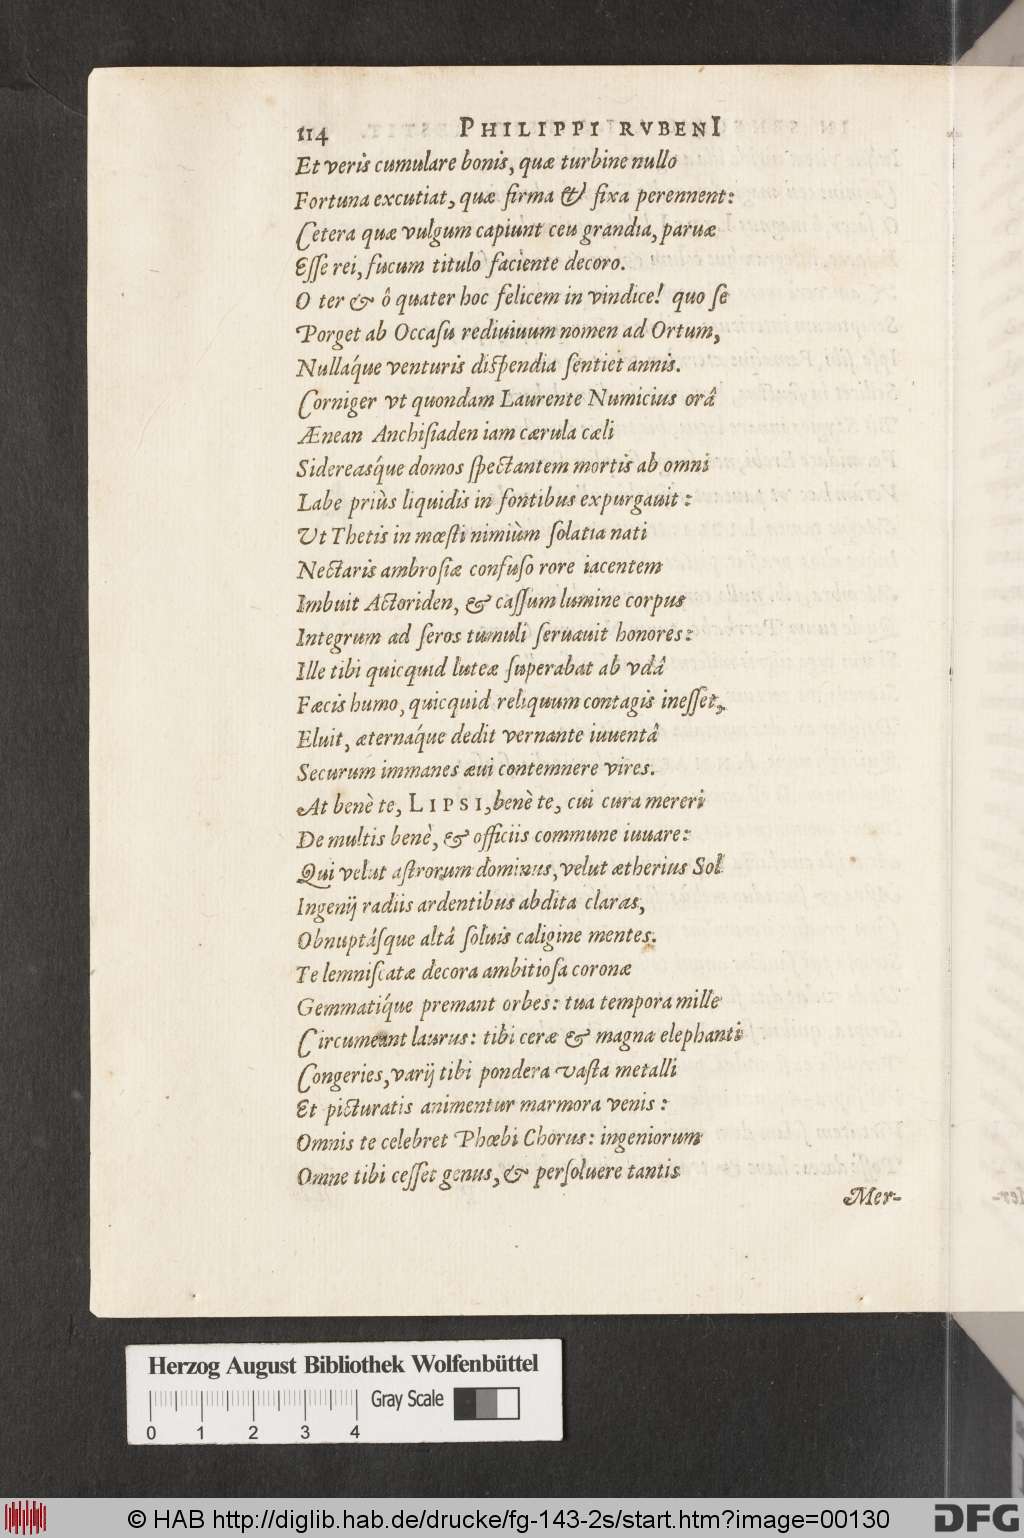 114 PHILIPPI RVBENI
Et veris cumulare bonis, quæ turbine nullo
Fortuna excutiat, quæ firma & fixa perennent:
Cetera quæ vulgum capiunt ceu grandia, paruæ
Eſſe rei, fucum titulo faciente decoro.
O ter & ô quater hoc felicem in vindice! quo ſe
Porget ab Occaſu rediuiuum nomen ad Ortum,
Nullaq́ue venturis diſpendia ſentiet annis.
Corniger vt quondam Laurente Numicius orâ
Ænean Anchiſiaden iam cærula cæli
Sidereasq́ue domos ſpectantem mortis ab omni
Labe priùs liquidis in fontibus expurgauit:
Ut Thetis in mœſti nimiùm ſolatia nati
Nectaris ambroſiæ confuſo rore iacentem
Imbuit Actoriden, & caſſum lumine corpus
Integrum ad ſeros tumuli ſeruauit honores:
Ille tibi quicquid luteæ ſuperabat ab vdâ
Fæcis humo, quicquid reliquum contagis ineſſet,
Eluit, æternaq́ue dedit vernante iuuentâ
Securum immanes æui contemnere vires.
At benè te, LIPSI, benè te, cui cura mereri
De multis benè, & officiis commune iuuare:
Qui velut aſtrorum dominus, velut ætherius Sol
Ingenij radiis ardentibus abdita claras,
Obnuptáſque altâ ſoluis caligine mentes.
Te lemniſcatæ decora ambitioſa coronæ
Gemmatiq́ue premant orbes: tua tempora mille
Circumeant laurus: tibi ceræ & magna elephanti
Congeries, varij tibi pondera vaſta metalli
Et picturatis animentur marmora venis:
Omnis te celebret Phœbi Chorus: ingeniorum
Omne tibi ceſſet genus, & perſoluere tantis
Mer-
Herzog August Bibliothek Wolfenbüttel
Gray Scale
0 1 2 3 4
© HAB http://diglib.hab.de/drucke/fg-143-2s/start.htm?image=00130
DFG